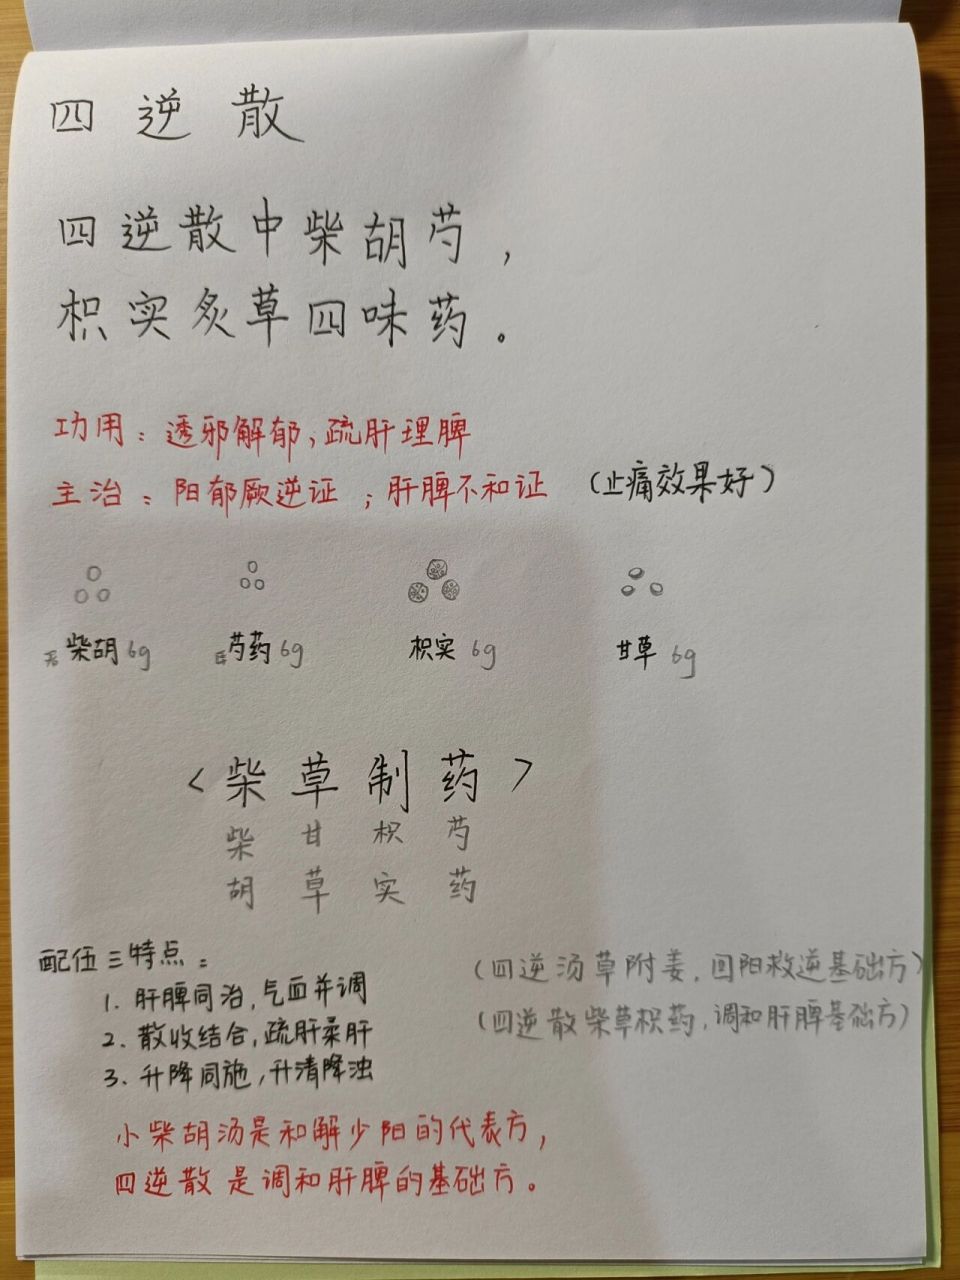 四逆散
四逆散中柴胡芍，
枳实炙草四味药。
功用：透邪解郁，疏肝理脾
主治：阳郁厥逆证；肝脾不和证（止痛效果好）
柴胡6g 芍药6g 枳实6g 甘草6g
<柴草制药>
柴甘枳芍
胡草实药
配伍三特点：
1. 肝脾同治，气血并调
2. 散收结合，疏肝柔肝
3. 升降同施，升清降浊
（四逆汤草附姜，回阳救逆基础方）
（四逆散柴草枳药，调和肝脾基础方）
小柴胡汤是和解少阳的代表方，
四逆散是调和肝脾的基础方。